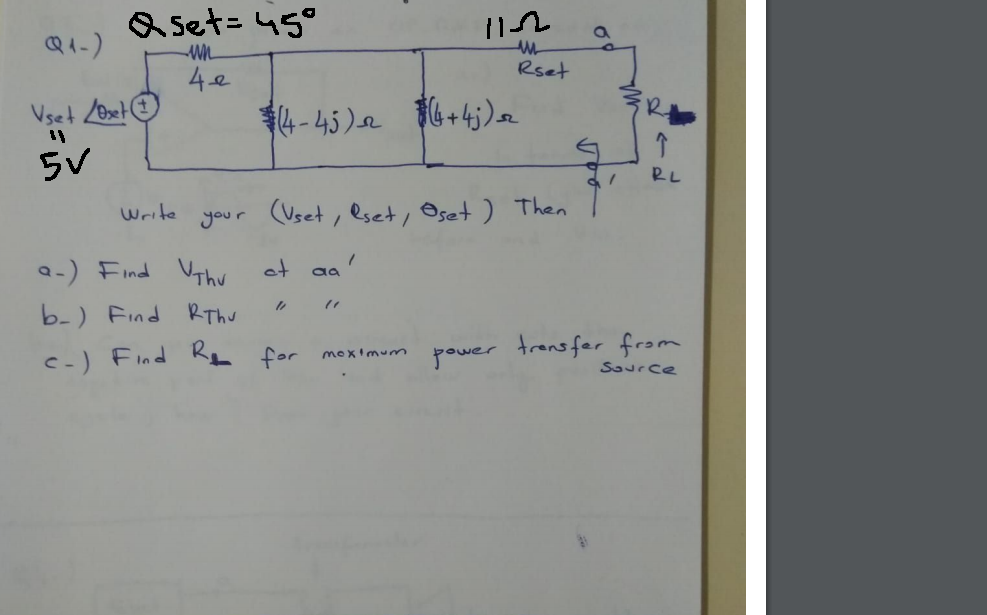 Qset = 45°
11Ω
a
Q1-)
4Ω
Rset
Vset ∠θset
±
(4-4j)Ω
(4+4j)Ω
R
"
5V
a'
↑
RL
Write your (Vset, Rset, θset) Then
a-) Find VThv at aa'
b-) Find RThv " "
c-) Find RL for maximum power transfer from
source